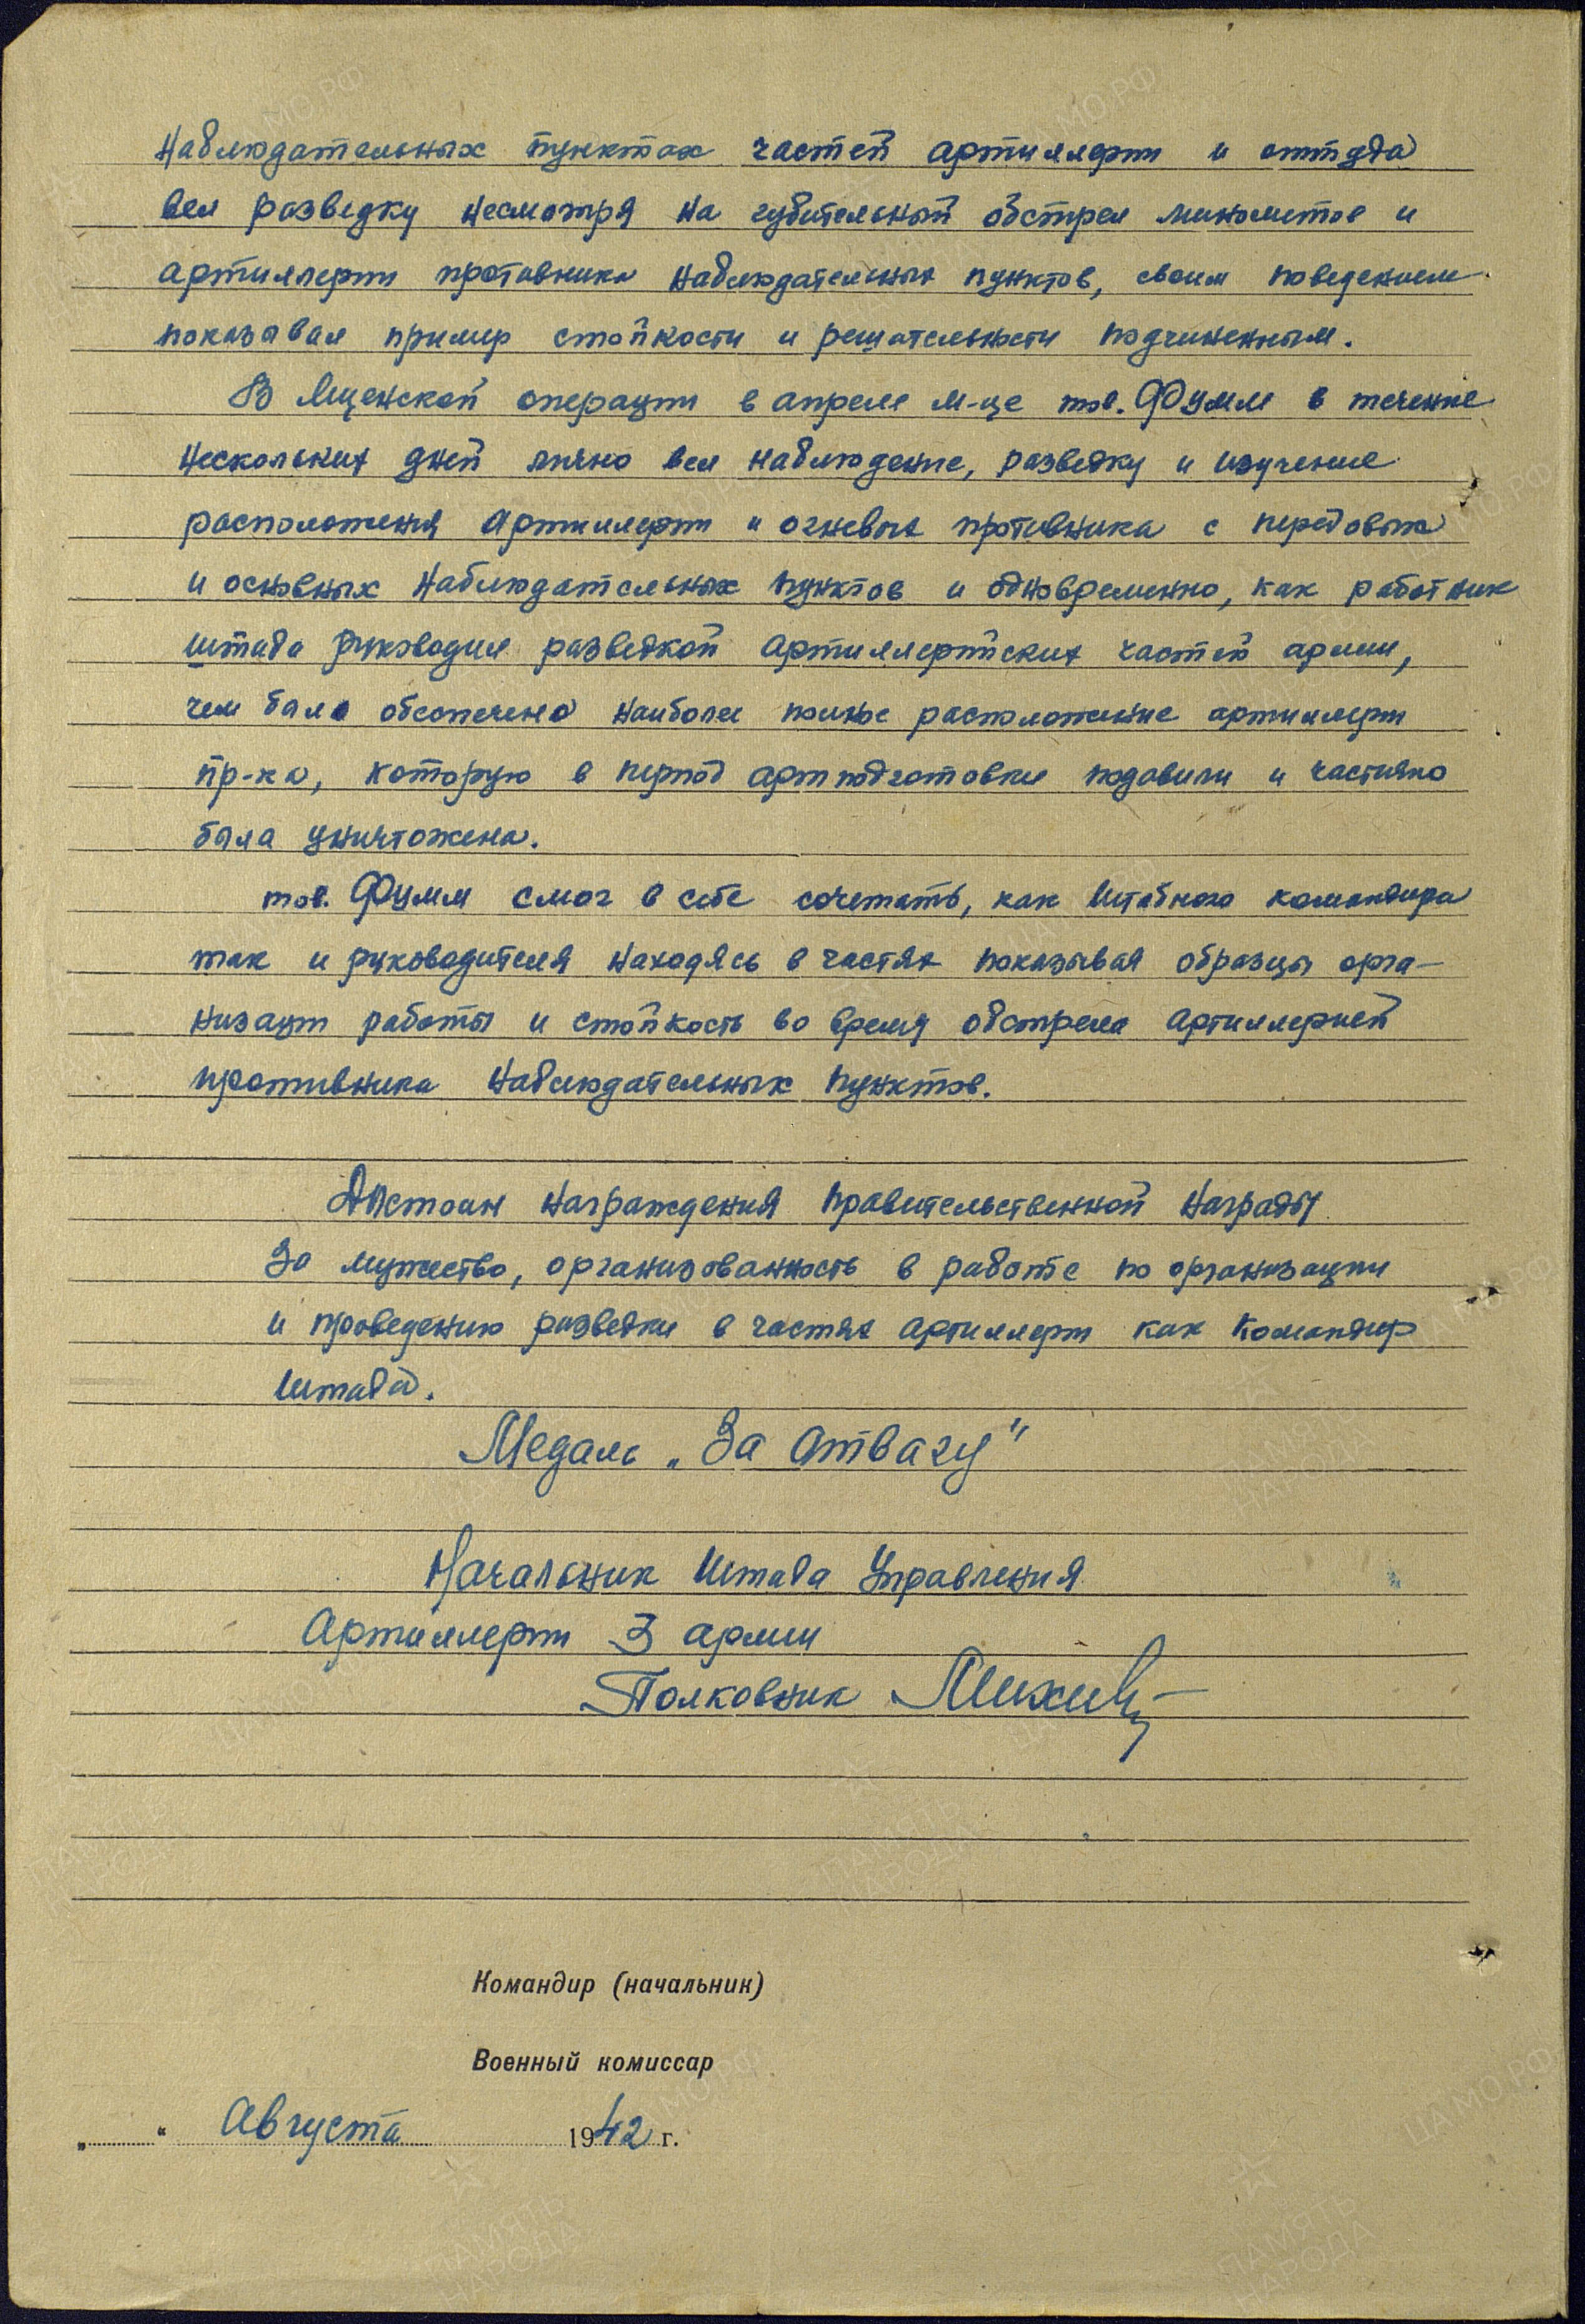 наблюдательных пунктах частей артиллерии и оттуда
вел разведку несмотря на губительный обстрел минометов и
артиллерии противника наблюдательных пунктов, своим поведением
показывал пример стойкости и решательности подчиненным.
В Мценской операции в апреле м-це тов. Фумм в течение
нескольких дней лично вел наблюдение, разведку и изучение
расположения артиллерии и огневых противника с передовых
и основных наблюдательных пунктов и одновременно, как работник
штаба руководил разведкой артиллерийских частей армии,
чем было обеспечено наиболее полное расположение артиллерии
пр-ка, которую в период артподготовки подавили и частично
была уничтожена.
тов. Фумм смог в себе сочетать, как штабного командира
так и руководителя находясь в частях показывая образцы орга-
низации работы и стойкость во время обстрела артиллерией
противника наблюдательных пунктов.
Достоин награждения правительственной награды
За мужество, организованность в работе по организации
и проведению разведки в частях артиллерии как командир
штаба.
Медаль „За отвагу"
Начальник штаба Управления
Артиллерии 3 армии
Полковник
Командир (начальник)
Военный комиссар
„ “ Августа 1942 г.
ЦАМО.РФ
ПАМЯТЬ
НАРОДА